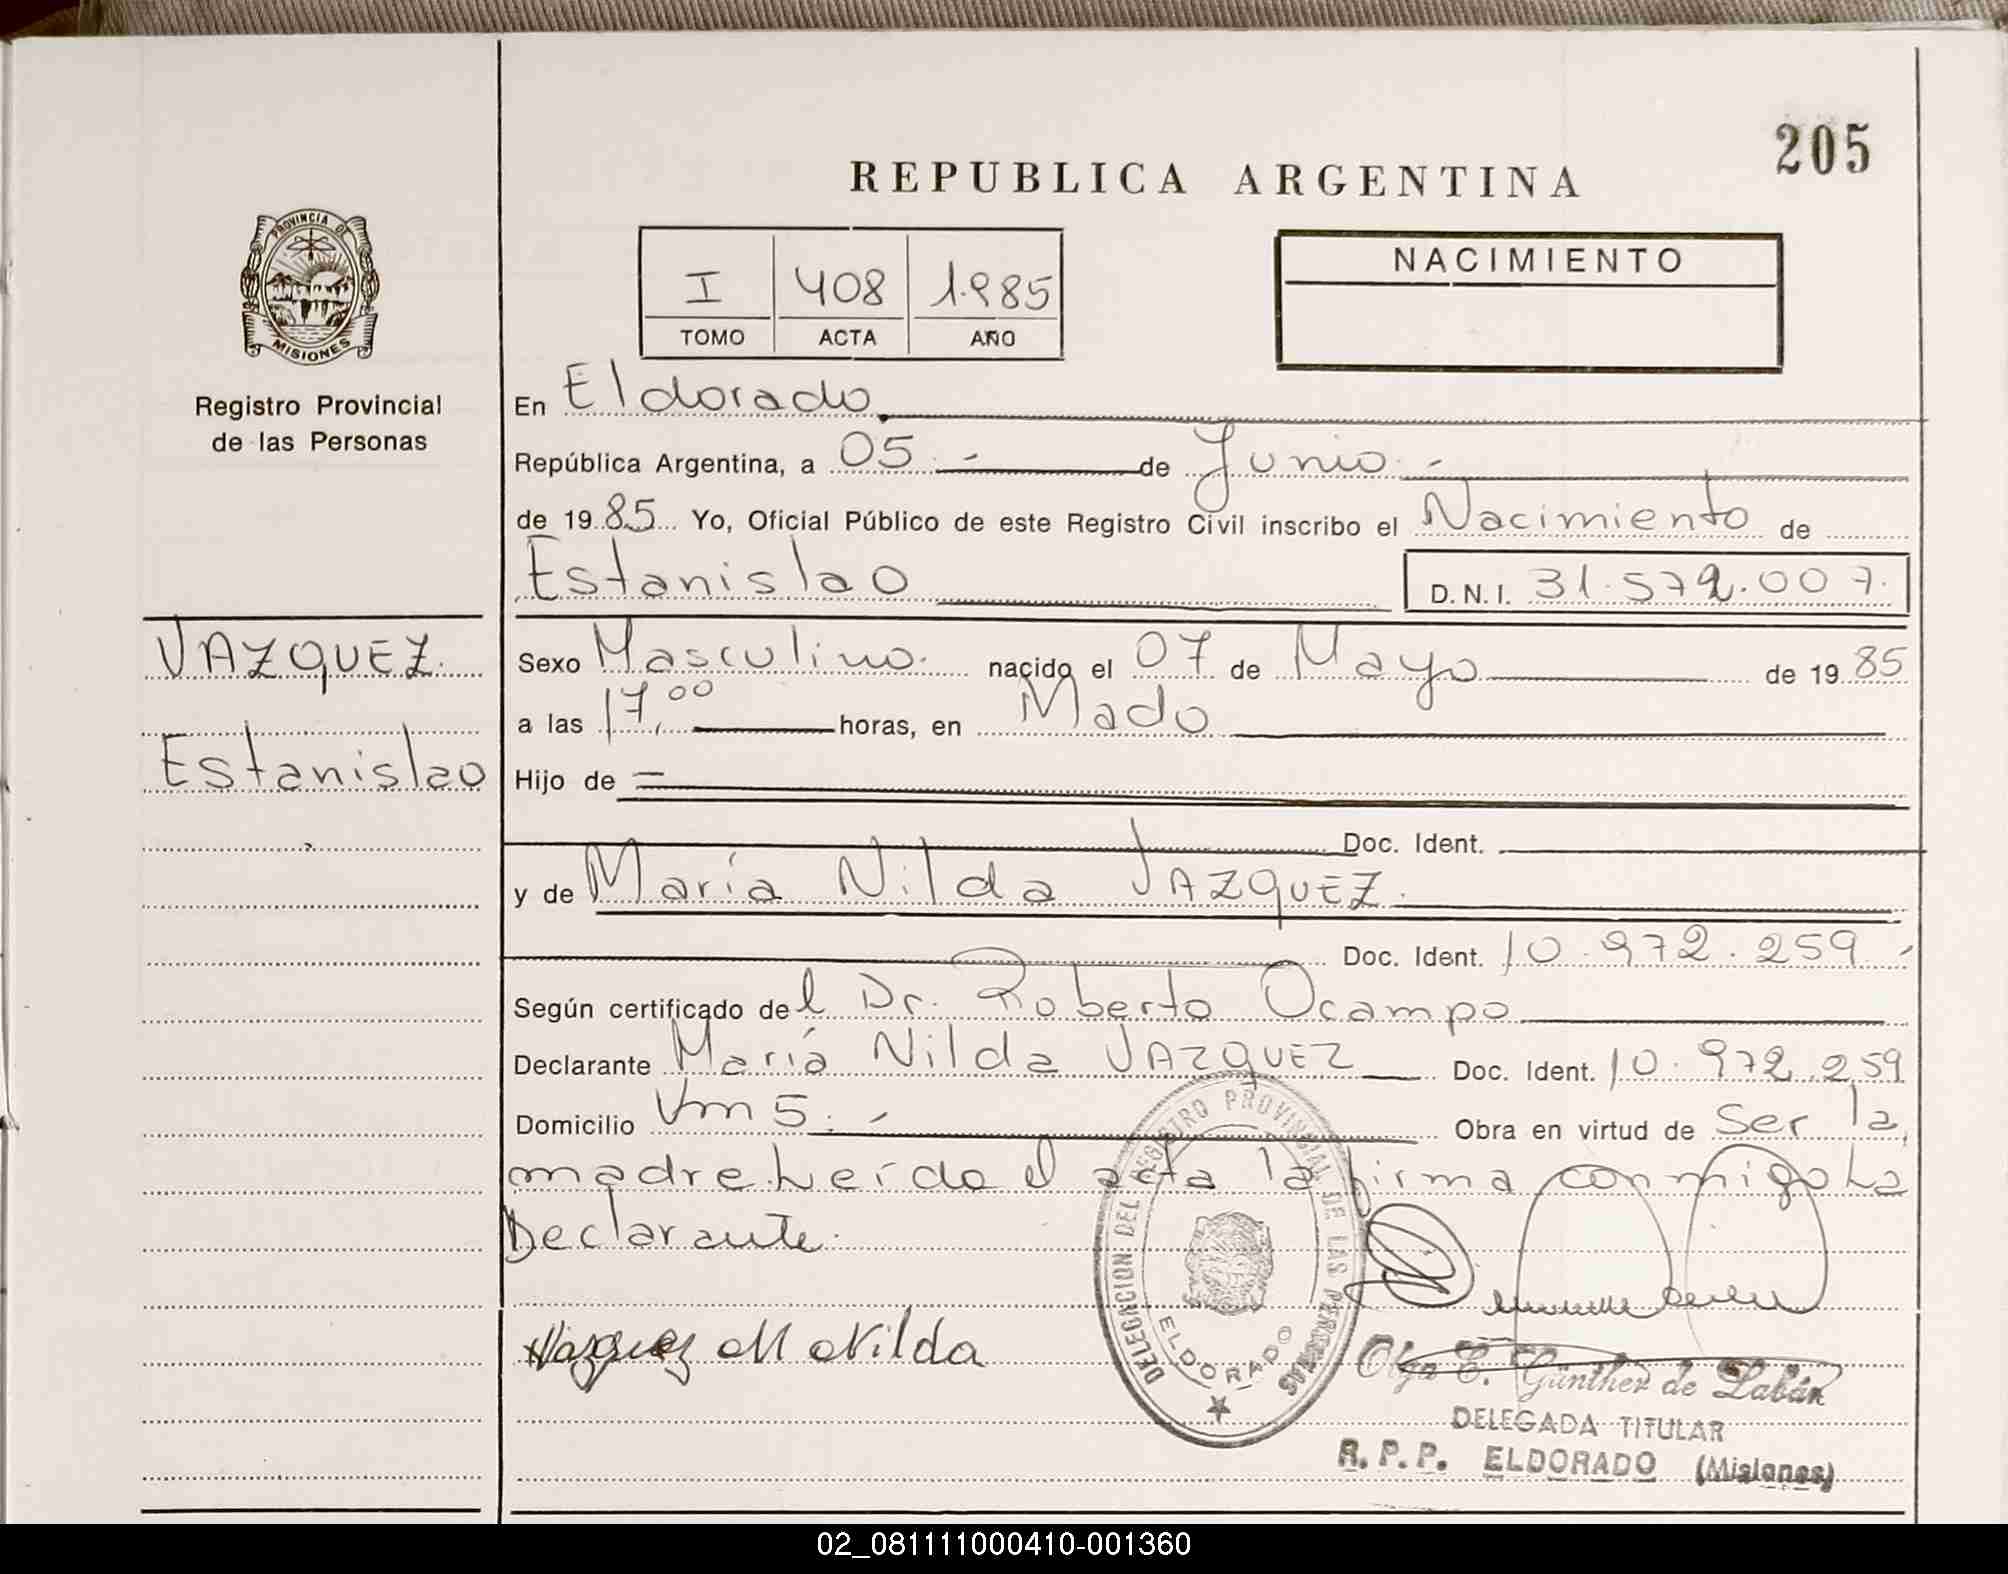 205
REPUBLICA ARGENTINA
PROVINCIA DE
MISIONES
Registro Provincial
de las Personas
I 408 1.985
TOMO ACTA AÑO
NACIMIENTO
En Eldorado
República Argentina, a 05.- de Junio.-
de 1985 Yo, Oficial Público de este Registro Civil inscribo el Nacimiento de
Estanislao D.N.I. 31.572.007.
VAZQUEZ.
Estanislao
Sexo Masculino. nacido el 07 de Mayo de 1985
a las 17,00 horas, en Mado
Hijo de =
Doc. Ident.
y de María Nilda VAZQUEZ.
Doc. Ident. 10.972.259.-
Según certificado del Dr. Roberto Ocampo
Declarante María Nilda VAZQUEZ Doc. Ident. 10.972.259
Domicilio Vm 5.- Obra en virtud de ser la
madre. Leída el acta la firma conmigo La
Declarante.
Vazquez M Nilda
DELEGACION DEL REGISTRO PROVINCIAL DE LAS PERSONAS
ELDORADO
Olga E. Günther de Labán
DELEGADA TITULAR
R. P. P. ELDORADO (Misiones)
02_081111000410-001360